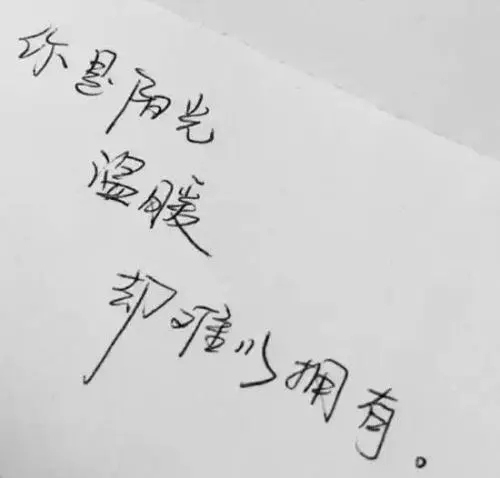 你是阳光
温暖
却难以拥有。